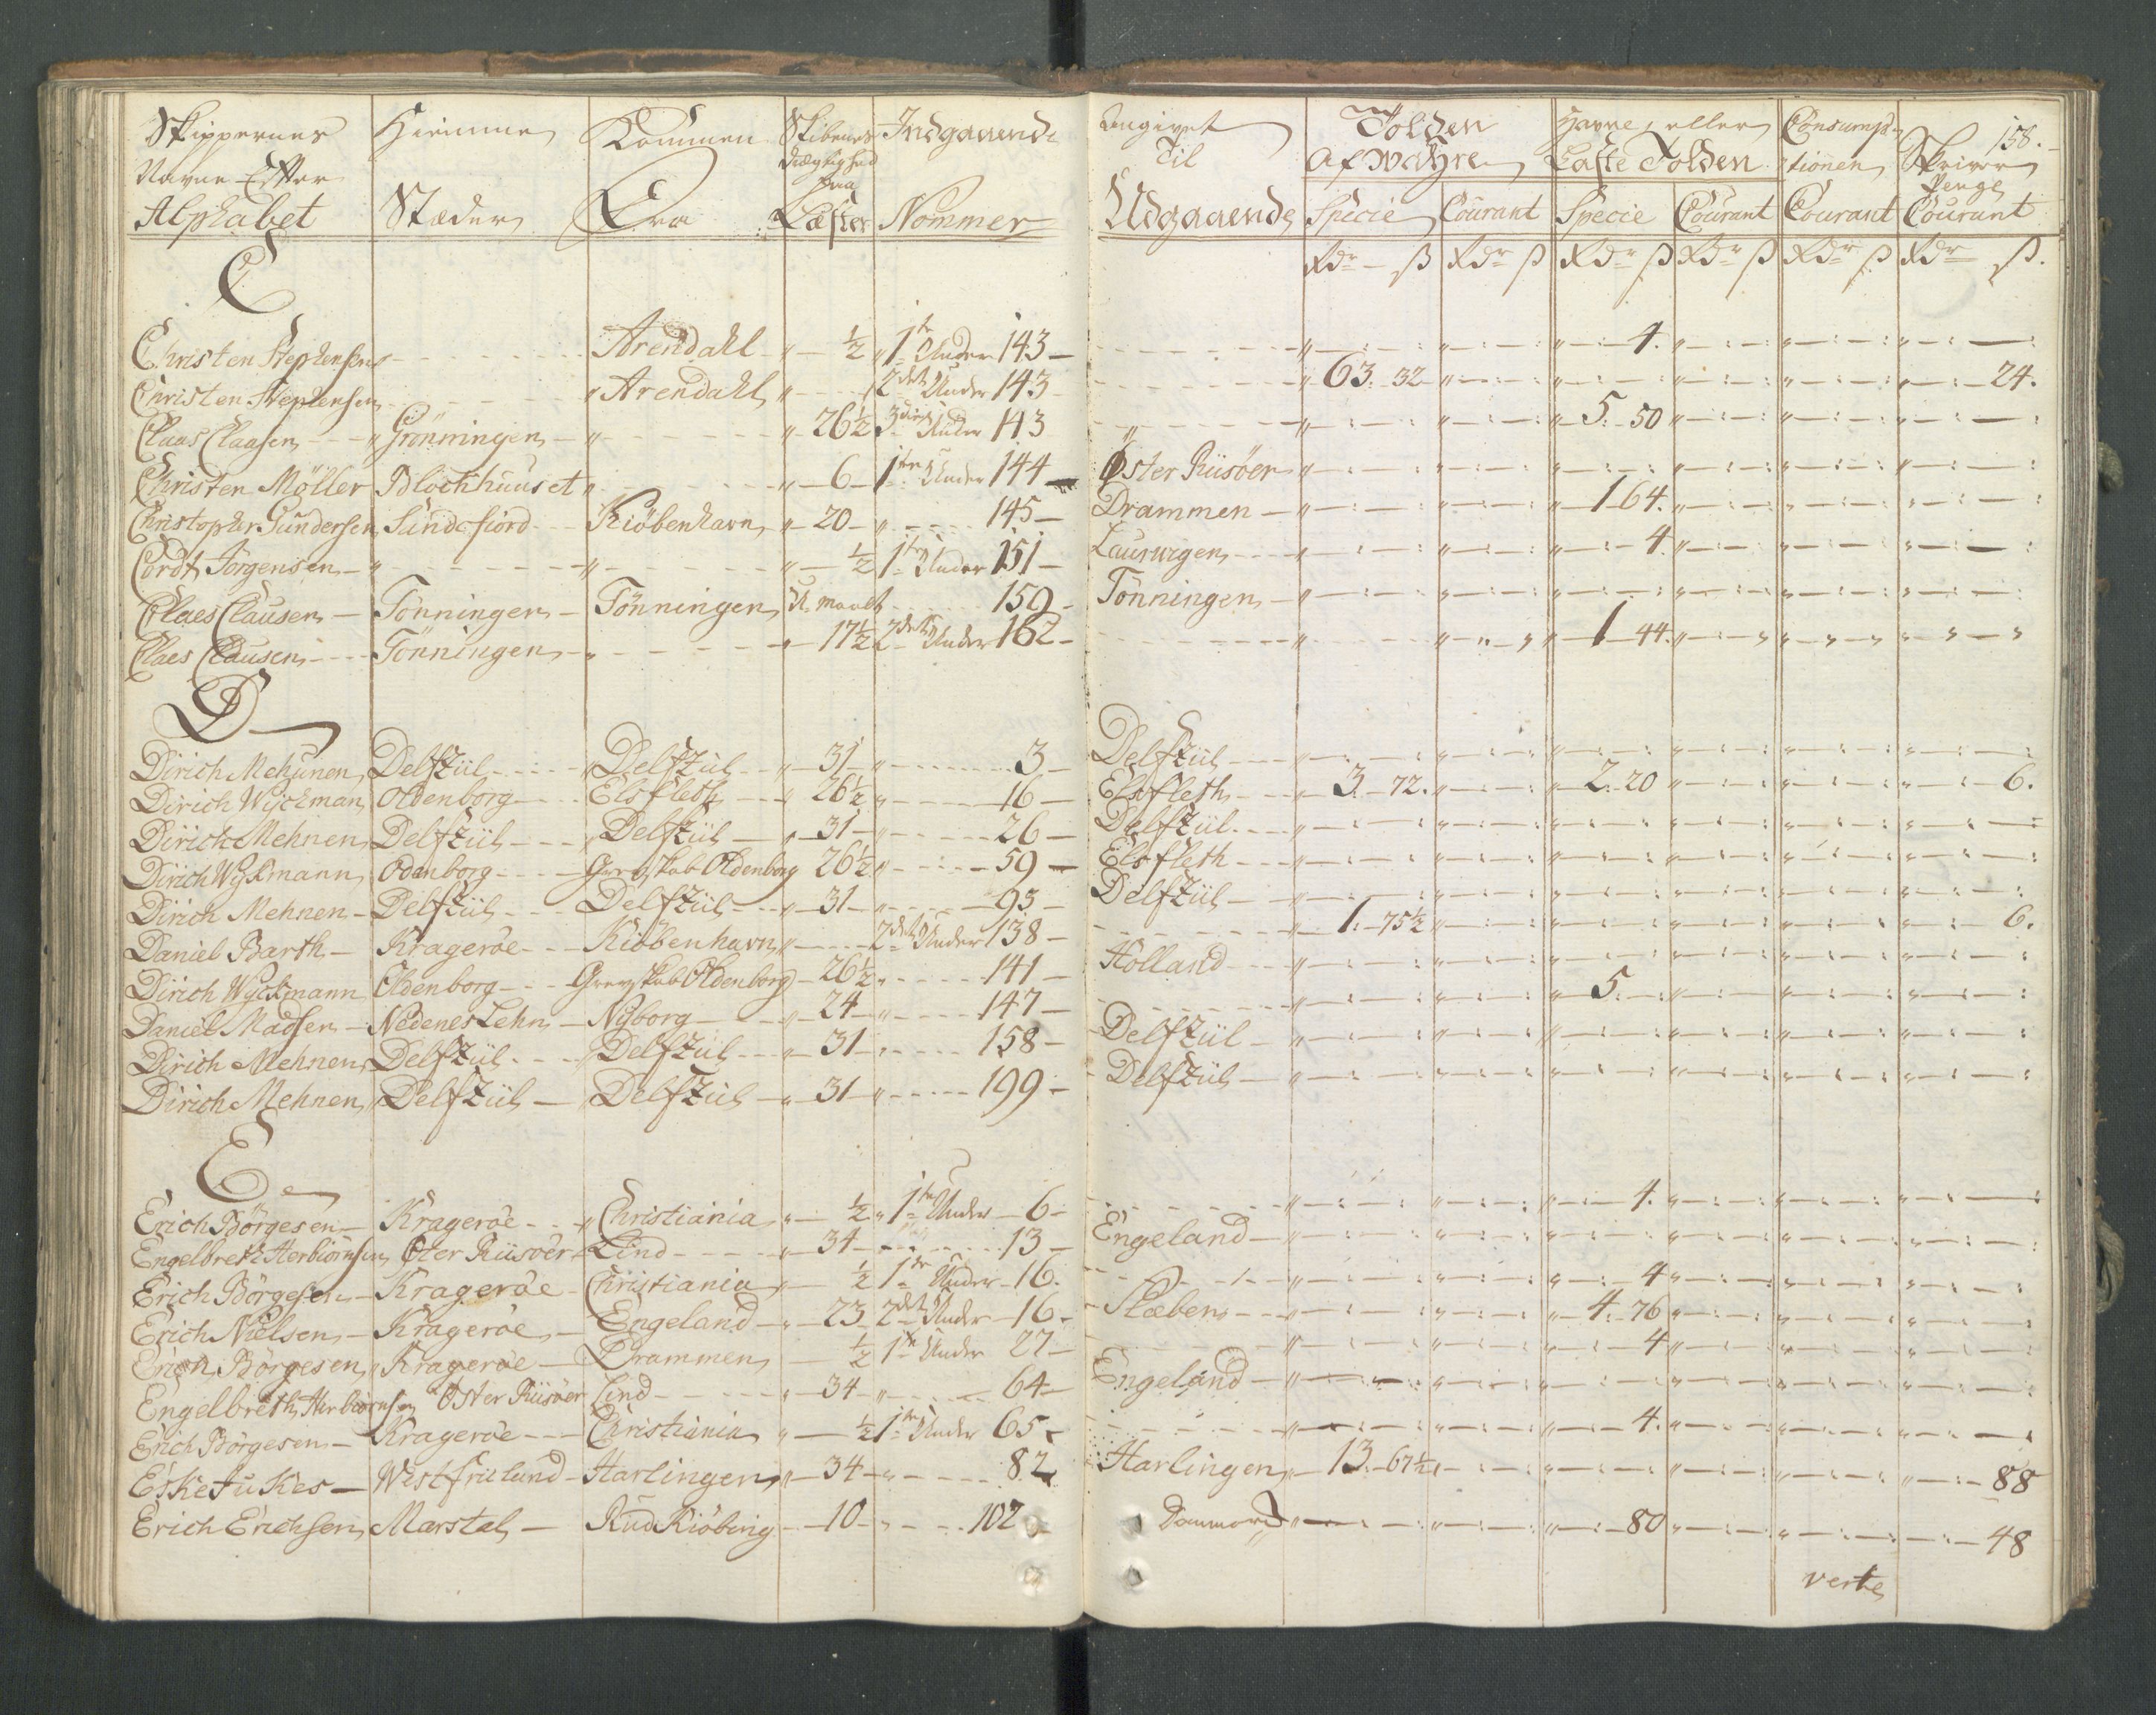 158.
Skippernes Navne Efter Alphabet | Hiemme Stæder | Kommen Fra | Skibenes drægtighed paa Læster | Indgaaende Nommer | Angivet Til Udgaaende | Tolden af Wahre Specie | Courant | Havne eller Laste Tolden Specie | Courant | Consumptionen Courant | Skriver Penge Courant
Rdr ß | Rdr ß | Rdr ß | Rdr ß | Rdr ß | Rdr ß
C
Christen Stephensen Arendahl ½ 1te Under 143 4.
Christen Stephensen Arendahl 2det Under 143 63. 32 24.
Claas Claasen Grönningen 26½ 3die Under 143 5. 50
Christen Möller Blochhuuset 6 1te Under 144 Öster Riisöer
Christopher Gundersen Sundefiord Kiöbenhavn 20 145 Drammen 1 64.
Cordt Jörgensen ½ 1te Under 151 Laurwigen 4.
Claes Clausen Tönningen Tönningen U. maalt 159 Tönningen
Claes Clausen Tönningen 17½ 2det Under 162 1 44.
D
Dirich Mehunen Delfziil Delfziil 31 3 Delfziil
Dirich Wyckman Oldenborg Elsfleth 26½ 16 Elsfleth 3. 72. 2. 20 6.
Dirich Mehnen Delfziil Delfziil 31 26 Delfziil
Dirich Wyckmann Odenborg Grevskab Oldenborg 26½ 59 Elsfleth
Dirich Mehnen Delfziil Delfziil 31 93 Delfziil
Daniel Barth Krageröe Kiöbenhavn 2det Under 138 1. 75½ 6.
Dirich Wyckmann Oldenborg Grevskab Oldenborg 26½ 141 Holland
Daniel Madsen Nedenes Lehn Nyborg 24 147 5.
Dirich Mehnen Delfziil Delfziil 31 158 Delfziil
Dirich Mehnen Delfziil Delfziil 31 199 Delfziil
E
Erich Börgesen Krageröe Christiania ½ 1te Under 6 4.
Engelbreth Herbiörnsen Öster Riisöer Lind 34 13 Engeland
Erich Börgesen Krageröe Christiania ½ 1te Under 16. 4
Erich Nielsen Krageröe Engeland 23 2det Under 16. Slæben 4. 76
Erich Börgesen Krageröe Drammen ½ 1te Under 27 4
Engelbreth Herbiörnsen Öster Riisöer Lind 34 64 Engeland
Erich Börgesen Krageröe Christiania ½ 1te Under 65 4.
Eske Jukes Westfriisland Harlingen 34 82 Harlingen 13. 67½ 88
Erich Erichsen Marstal Rudkiöbing 10 102 Danmark 80 48
verte